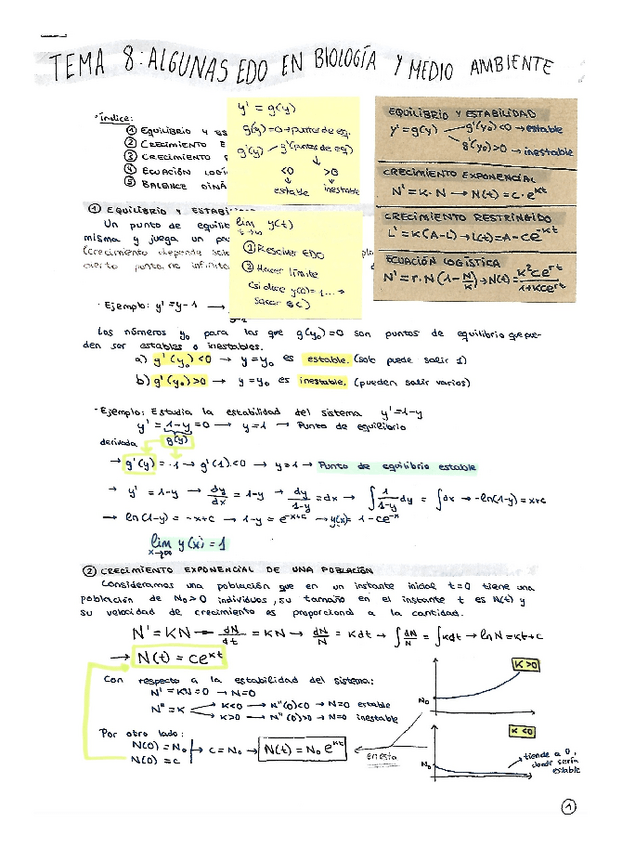 TEMA 8: ALGUNAS EDO EN BIOLOGÍA Y MEDIO AMBIENTE
·Índice:
① EQUILIBRIO Y ES
② CRECIMIENTO E
③ CRECIMIENTO
④ ECUACIÓN LOGÍ
⑤ BALANCE DINÁ
y' = g(y)
g(y)=0→puntos de eq.
g'(y) → g'(puntos de eq)
<0 >0
estable inestable
EQUILIBRIO Y ESTABILIDAD
y' = g(y) g'(y₀)<0→estable
g'(y₀)>0 → inestable
CRECIMIENTO EXPONENCIAL
N' = K·N → N(t) = c·e^kt
CRECIMIENTO RESTRINGIDO
L' = K(A-L)→L(t)=A-ce^-kt
ECUACIÓN LOGÍSTICA
N' = r·N(1-N/K)→N(t)=K²ce^rt/1+Kce^rt
① EQUILIBRIO Y ESTABI
Un punto de equilib
misma y juega un pa
(crecimiento depende
cierto punto, no infinito
lim t→∞ y(t)
① Resolver EDO
② Hacer límite
(si dice y(0)=1...→
sacar C)
· Ejemplo: y' = y-1 →
Los números y₀ para los que g(y₀)=0 son puntos de equilibrio que pue-
den ser estables o inestables.
a) g'(y₀)<0 → y=y₀ es estable. (solo puede salir 1)
b) g'(y₀)>0 → y=y₀ es inestable. (pueden salir varios)
· Ejemplo: Estudia la estabilidad del sistema y'=1-y
y' = 1-y = 0 → y=1 → Punto de equilibrio
derivada g(y)
→ g'(y) = -1 → g'(1)<0 → y=1 → Punto de equilibrio estable
→ y' = 1-y → dy/dx = 1-y → dy/1-y = dx → ∫1/1-y dy = ∫dx → -ln(1-y)=x+c
→ ln(1-y) = -x+c → 1-y = e^-x+c → y(x) = 1-ce^-x
lim x→∞ y(x) = 1
② CRECIMIENTO EXPONENCIAL DE UNA POBLACIÓN
Consideramos una población que en un instante inicial t=0 tiene una
población de N₀>0 individuos, su tamaño en el instante t es N(t) y
su velocidad de crecimiento es proporcional a la cantidad.
N' = KN → dN/dt = KN → dN/N = Kdt → ∫dN/N = ∫Kdt → ln N = Kt+C
→ N(t) = ce^Kt
Con respecto a la estabilidad del sistema:
N' = KN = 0 → N=0
N'' = K K<0 → N''(0)<0 → N=0 estable
K>0 → N''(0)>0 → N=0 inestable
Por otro lado:
N(0) = N₀
N(0) = c → c = N₀ → N(t) = N₀ e^Kt
En esta
K>0
N₀
K<0
N₀
tiende a 0,
donde sería
estable
①